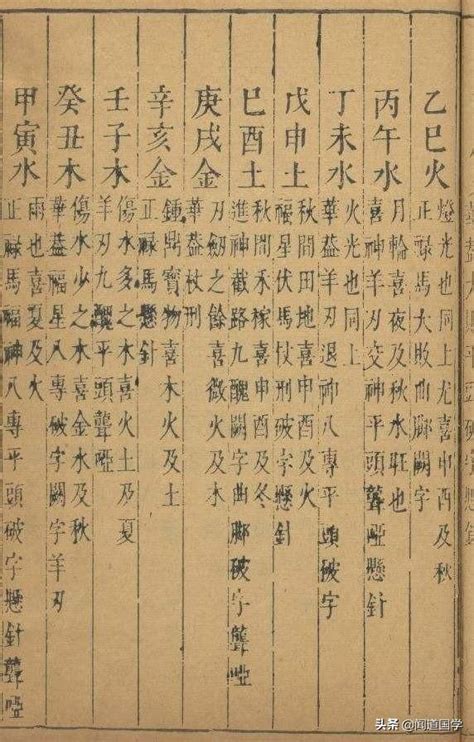 乙巳火
燈光也同上尤喜申酉及秋
正祿馬大敗曲脚闕字
丙午水
月輪喜夜及秋水旺也
喜神羊刃交神平頭聾啞懸針
丁未水
火光也同上
華蓋羊刃退神八專平頭破字
戊申土
秋間田地喜申酉及火
福星伏馬杖刑破字懸針
巳酉土
秋間禾稼喜申酉及冬
進神截路九醜闕字曲脚破字聾啞
庚戌金
刀劒之餘喜微火及木
華蓋杖刑
辛亥金
鍾鼎寶物喜木火及土
正祿馬懸針
壬子木
傷水多之木喜火土及夏
羊刃九醜平頭聾啞
癸丑木
傷水少之木喜金水及秋
華蓋福星八專破字闕字羊刃
甲寅水
雨也喜夏及火
正祿馬福神八專平頭破字懸針聾啞
头条 @闻道国学